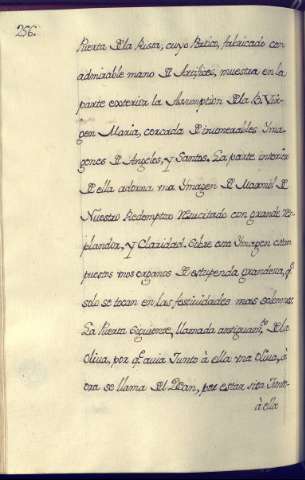 256.
Puerta D la Rosa, cuyo Portico, fabricado con
admirable mano D Artifices, muestra en la
parte exterior la Assumption D la B. Vir-
gen Maria, cercada D innumerables Yma-
genes D Angeles, y Santos. La parte interior
D ella adorna una Ymagen D Marmol D
Nuestro Redemptor Resucitado con grande res-
plandor, y Claridad. Sobre esta Ymagen estan
puestos unos organos D estupenda grandeza, q.
solo se tocan en las festividades mas solemnes.
La Puerta Siguiente, llamada antiguam.te D la
Oliva, por q. avia Junto à ella una Oliva, à
ora se llama D l Dean, por estar sita Junto
à ella